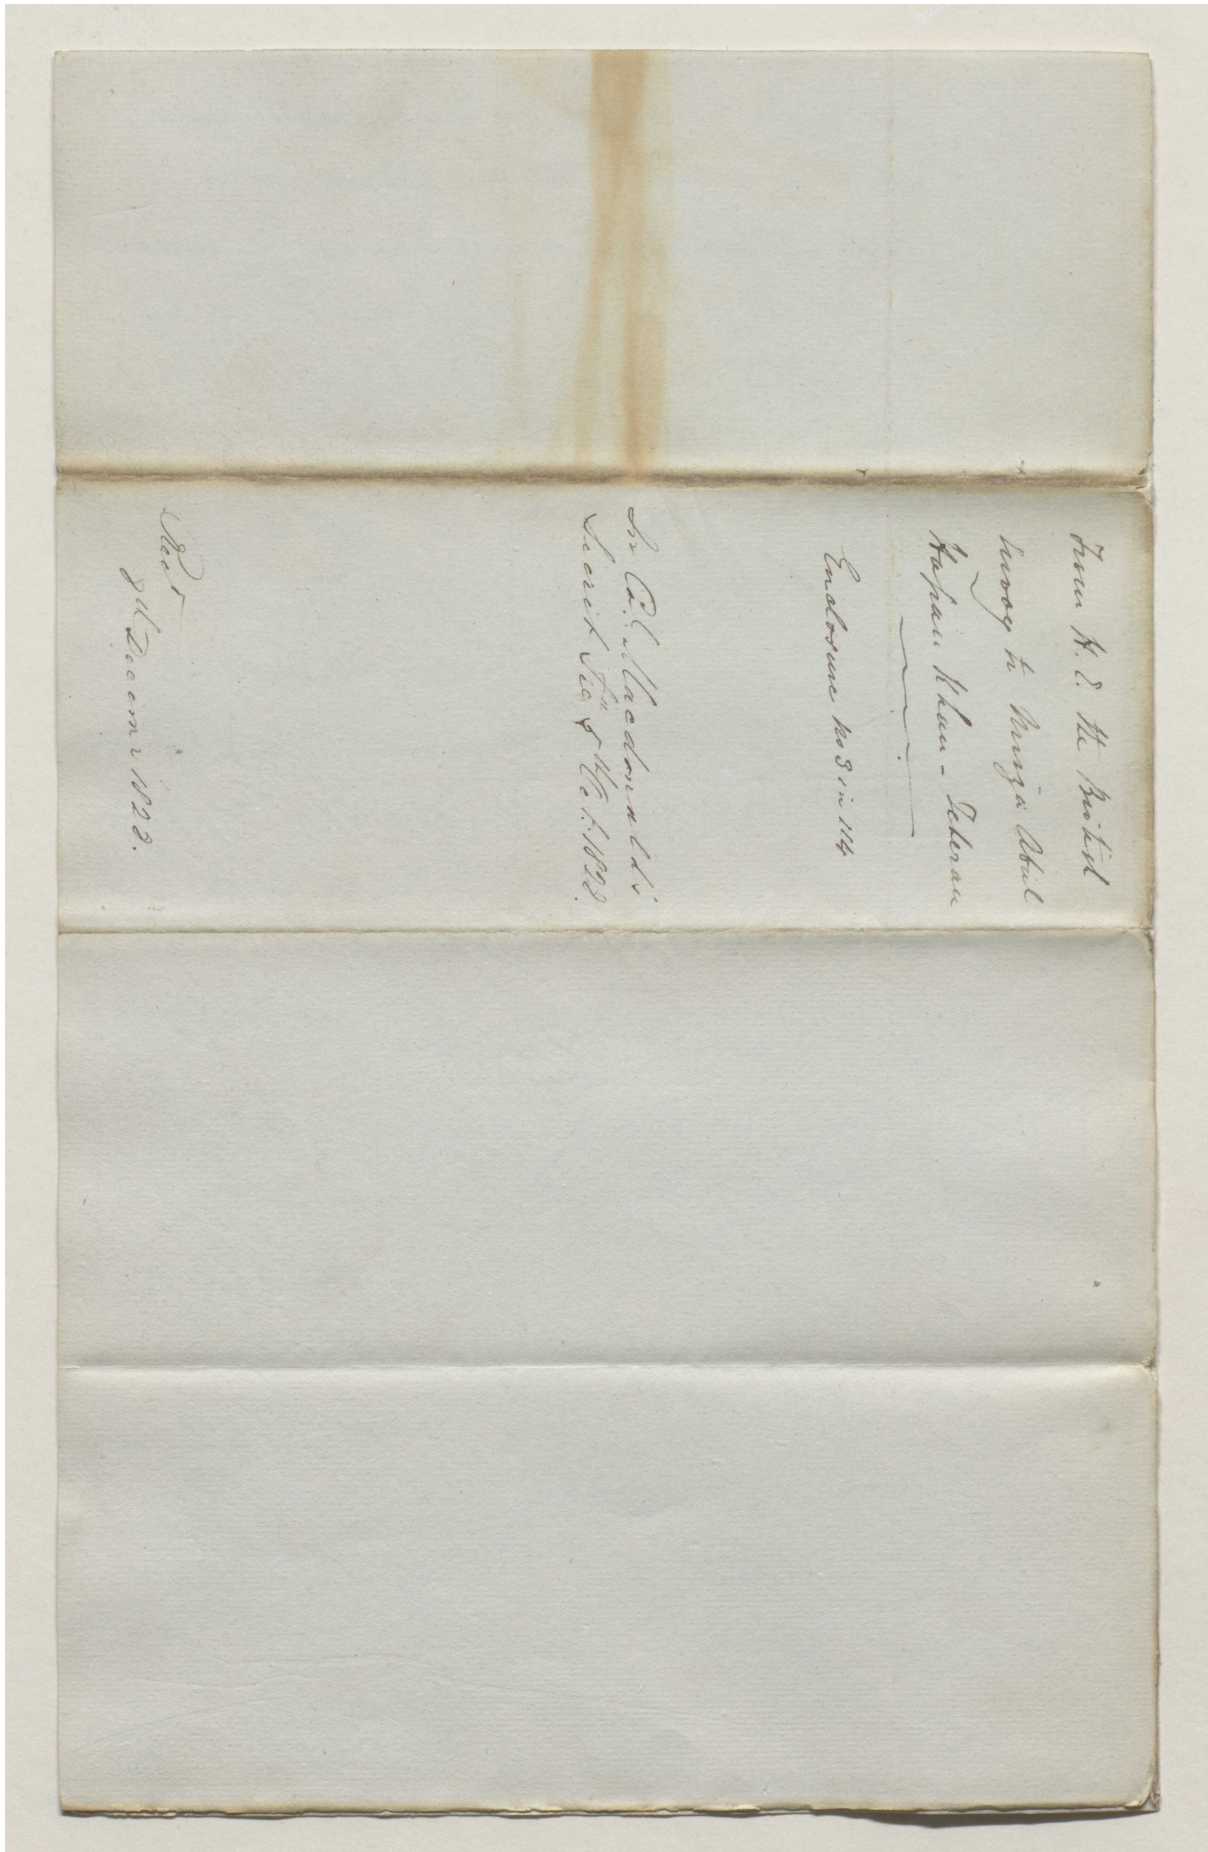 From H. E. the British
Envoy to Mirza Abul
Hassan Khan - Teheran
Enclosure No 3 in 114
In Col. Macdonald's
Secret 4th Oct. 1828.
Recd
8th Decemr 1828.